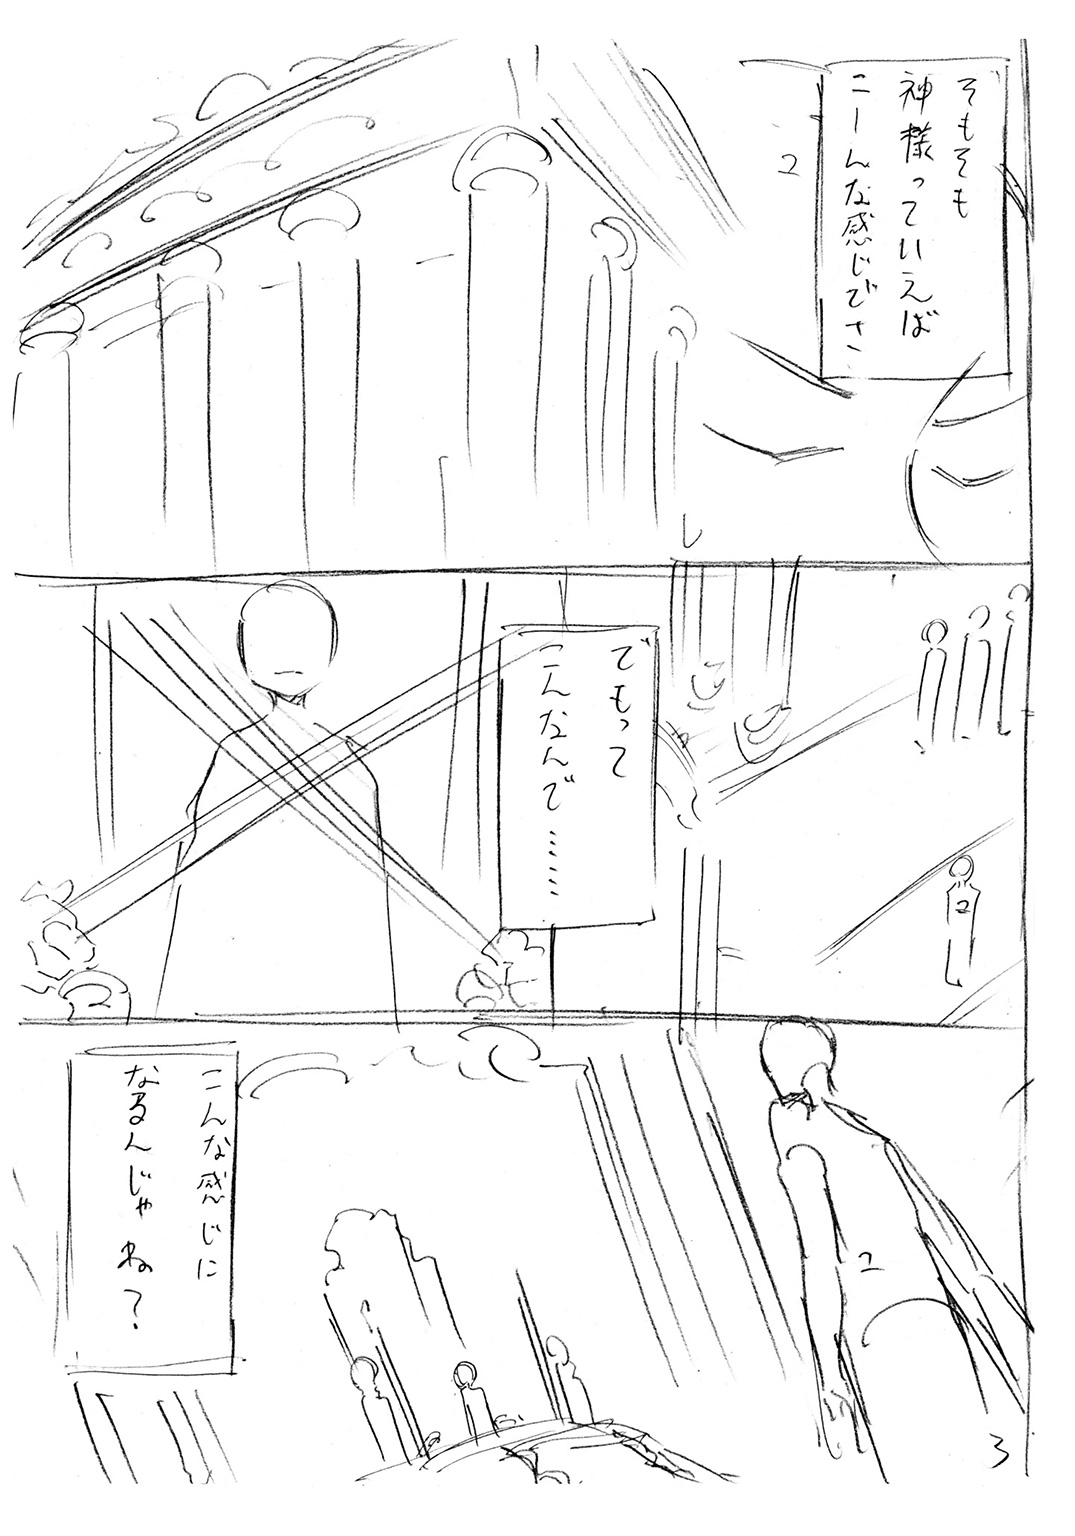 そもそも
神様っていえば
こーんな感じでさ
ユ
でもって
こんなんで……
ユ
ユ
こんな感じに
なるんじゃね?
ユ
3